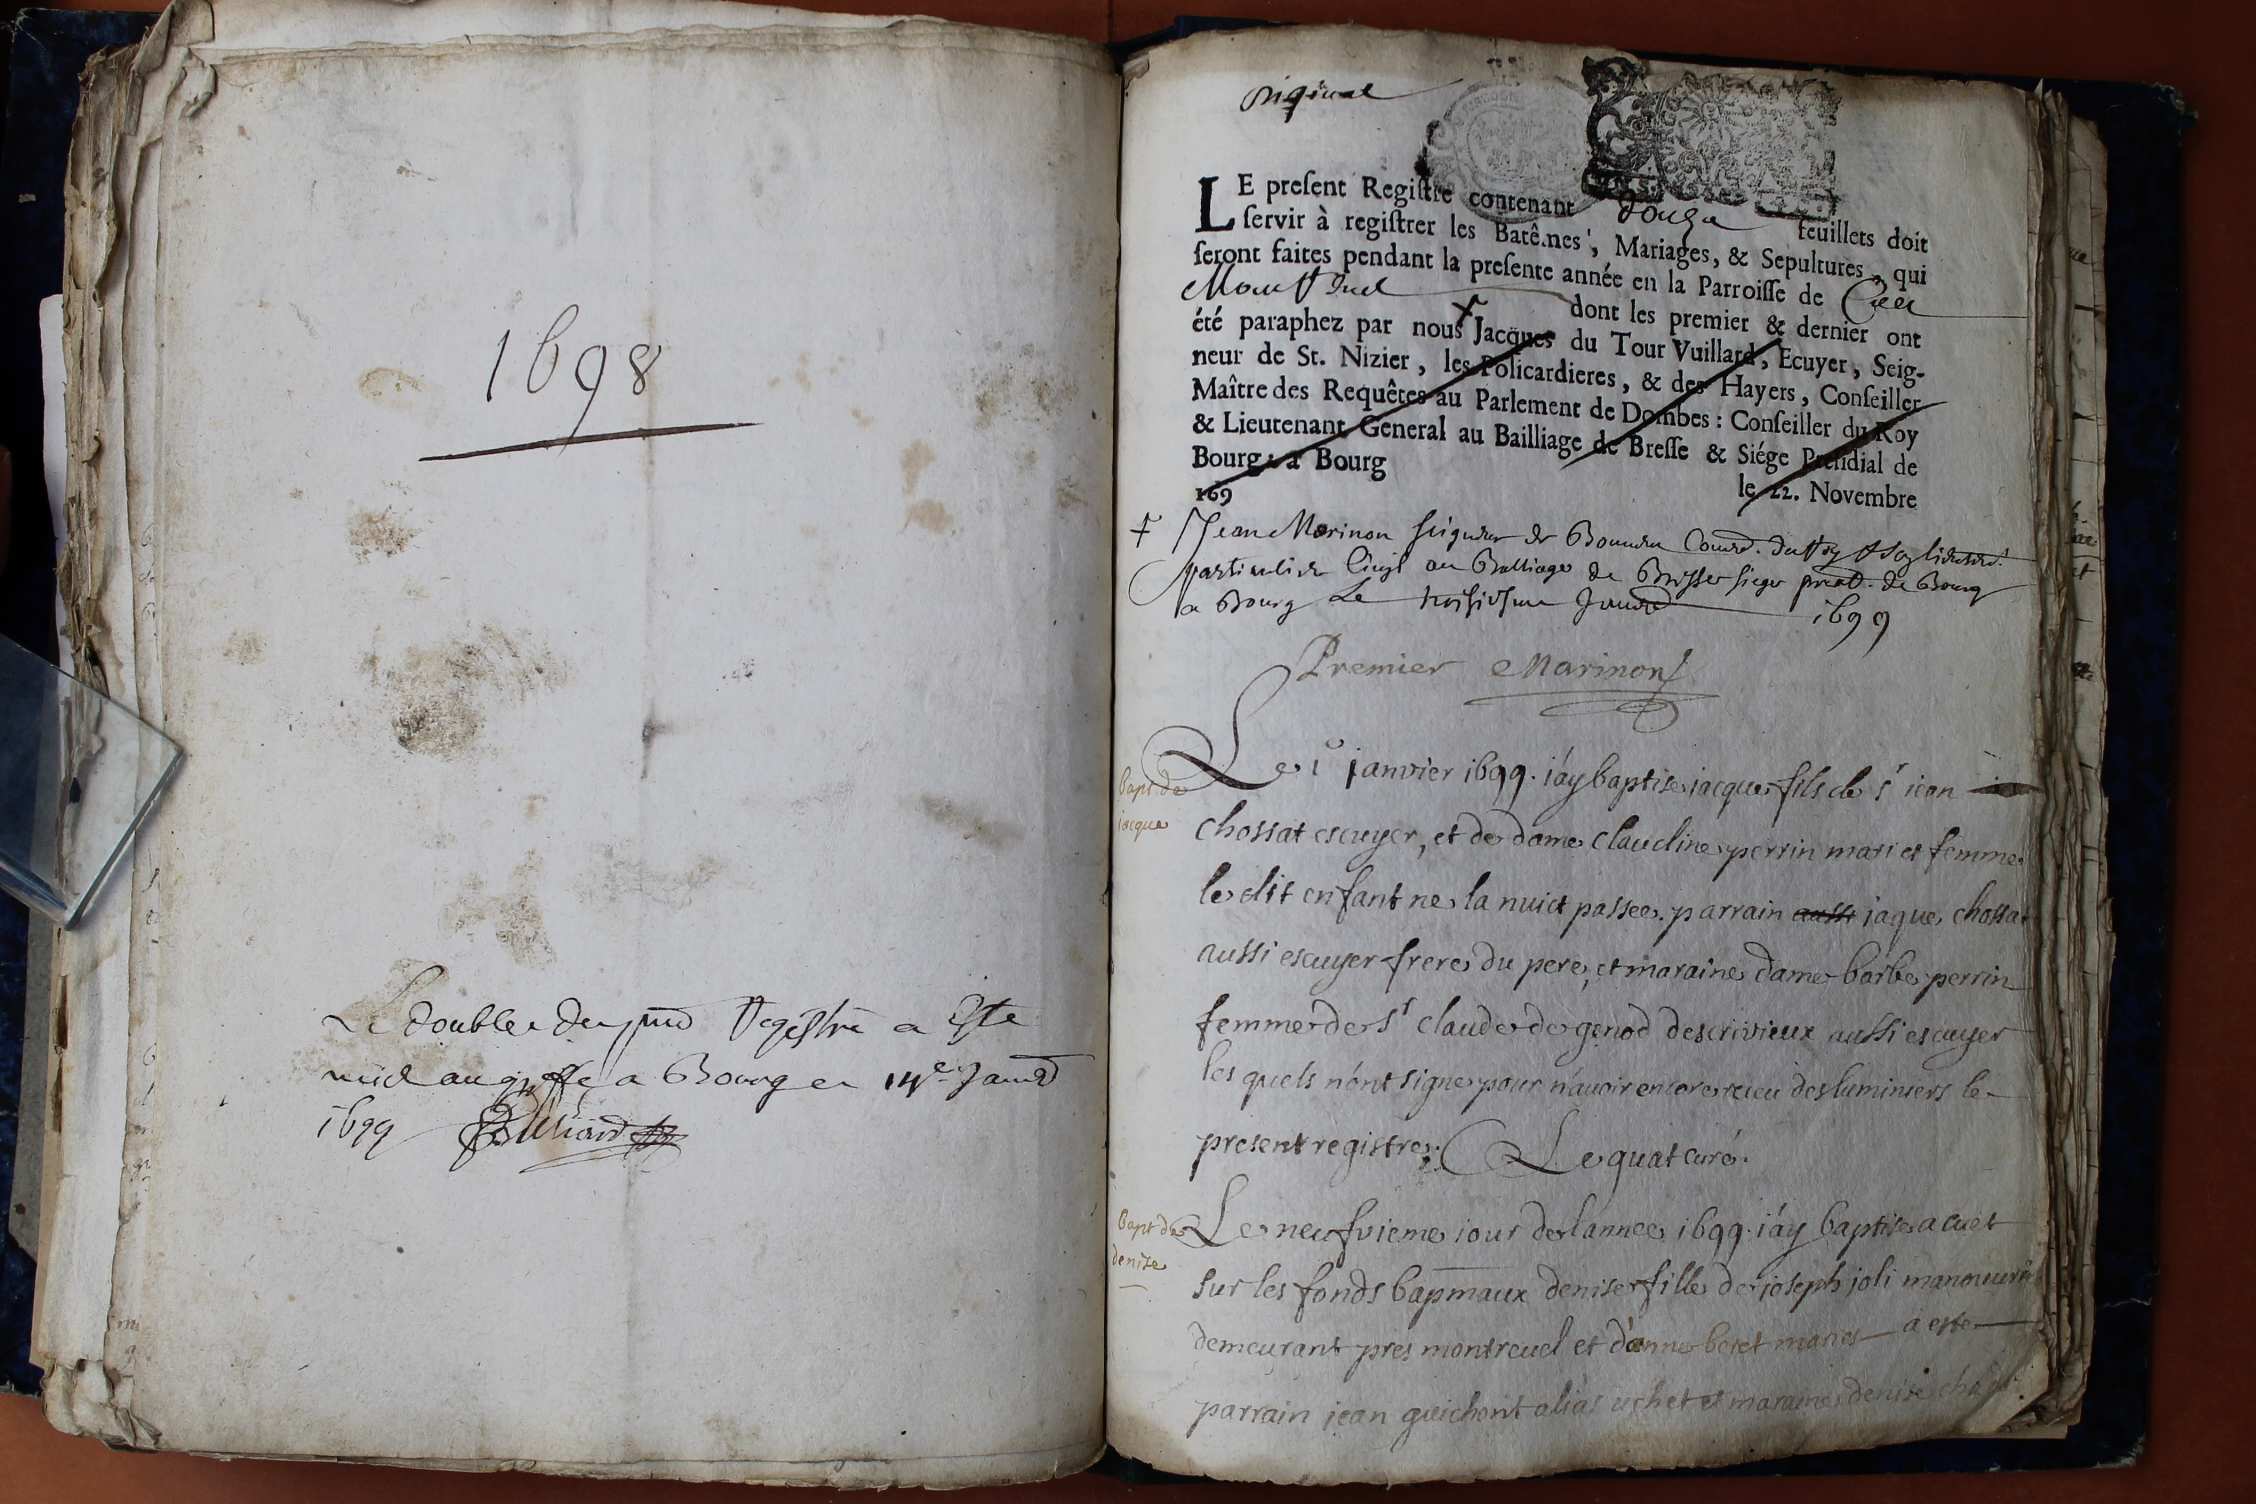 1698
Le double du pnt Registre a Esté
mis au greffe a Bourg ce 14e Janv
1699
original
LE preſent Regiſtre contenant douze feuillets doit
ſervir à regiſtrer les Batêmes, Mariages, & Sepultures, qui
ſeront faites pendant la preſente année en la Parroiſſe de Cuet
Montreuel dont les premier & dernier ont
été paraphez par nous Jacques du Tour Vuillard, Ecuyer, Seig-
neur de St. Nizier, les Policardieres, & des Hayers, Conſeiller
Maître des Requêtes au Parlement de Dombes : Conſeiller du Roy
& Lieutenant General au Bailliage de Breſſe & Siége Preſidial de
Bourg : à Bourg le 22. Novembre
169
Jean Marinon seigneur de
particulier Civil au Balliage de Bresse siege de Bourg
a Bourg Le troisiesme Janvr 1699
Premier Marinon
bapt de
jacque
Le 1er janvier 1699. i'ay baptise iacque fils de sr iean
chossat escuyer, et de dame claudine perrin mari et femme
le dit enfant ne la nuict passee. parrain aussi jaque chossat
aussi escuyer frere du pere, et maraine dame barbe perrin
femme de sr claude de genod descrivieux aussi escuyer
les quels n'ont signe pour n'avoir encore receu des luminiers le
present registre. Lequat curé.
bapt de
denise
Le neufvieme iour de lannee 1699. i'ay baptise a cuet
sur les fonds bapmaux denise fille de joseph joli manouvrier
demeurant pres montreuel et d'anne betet maries a este
parrain jean guichont alias uchet et maraine denise